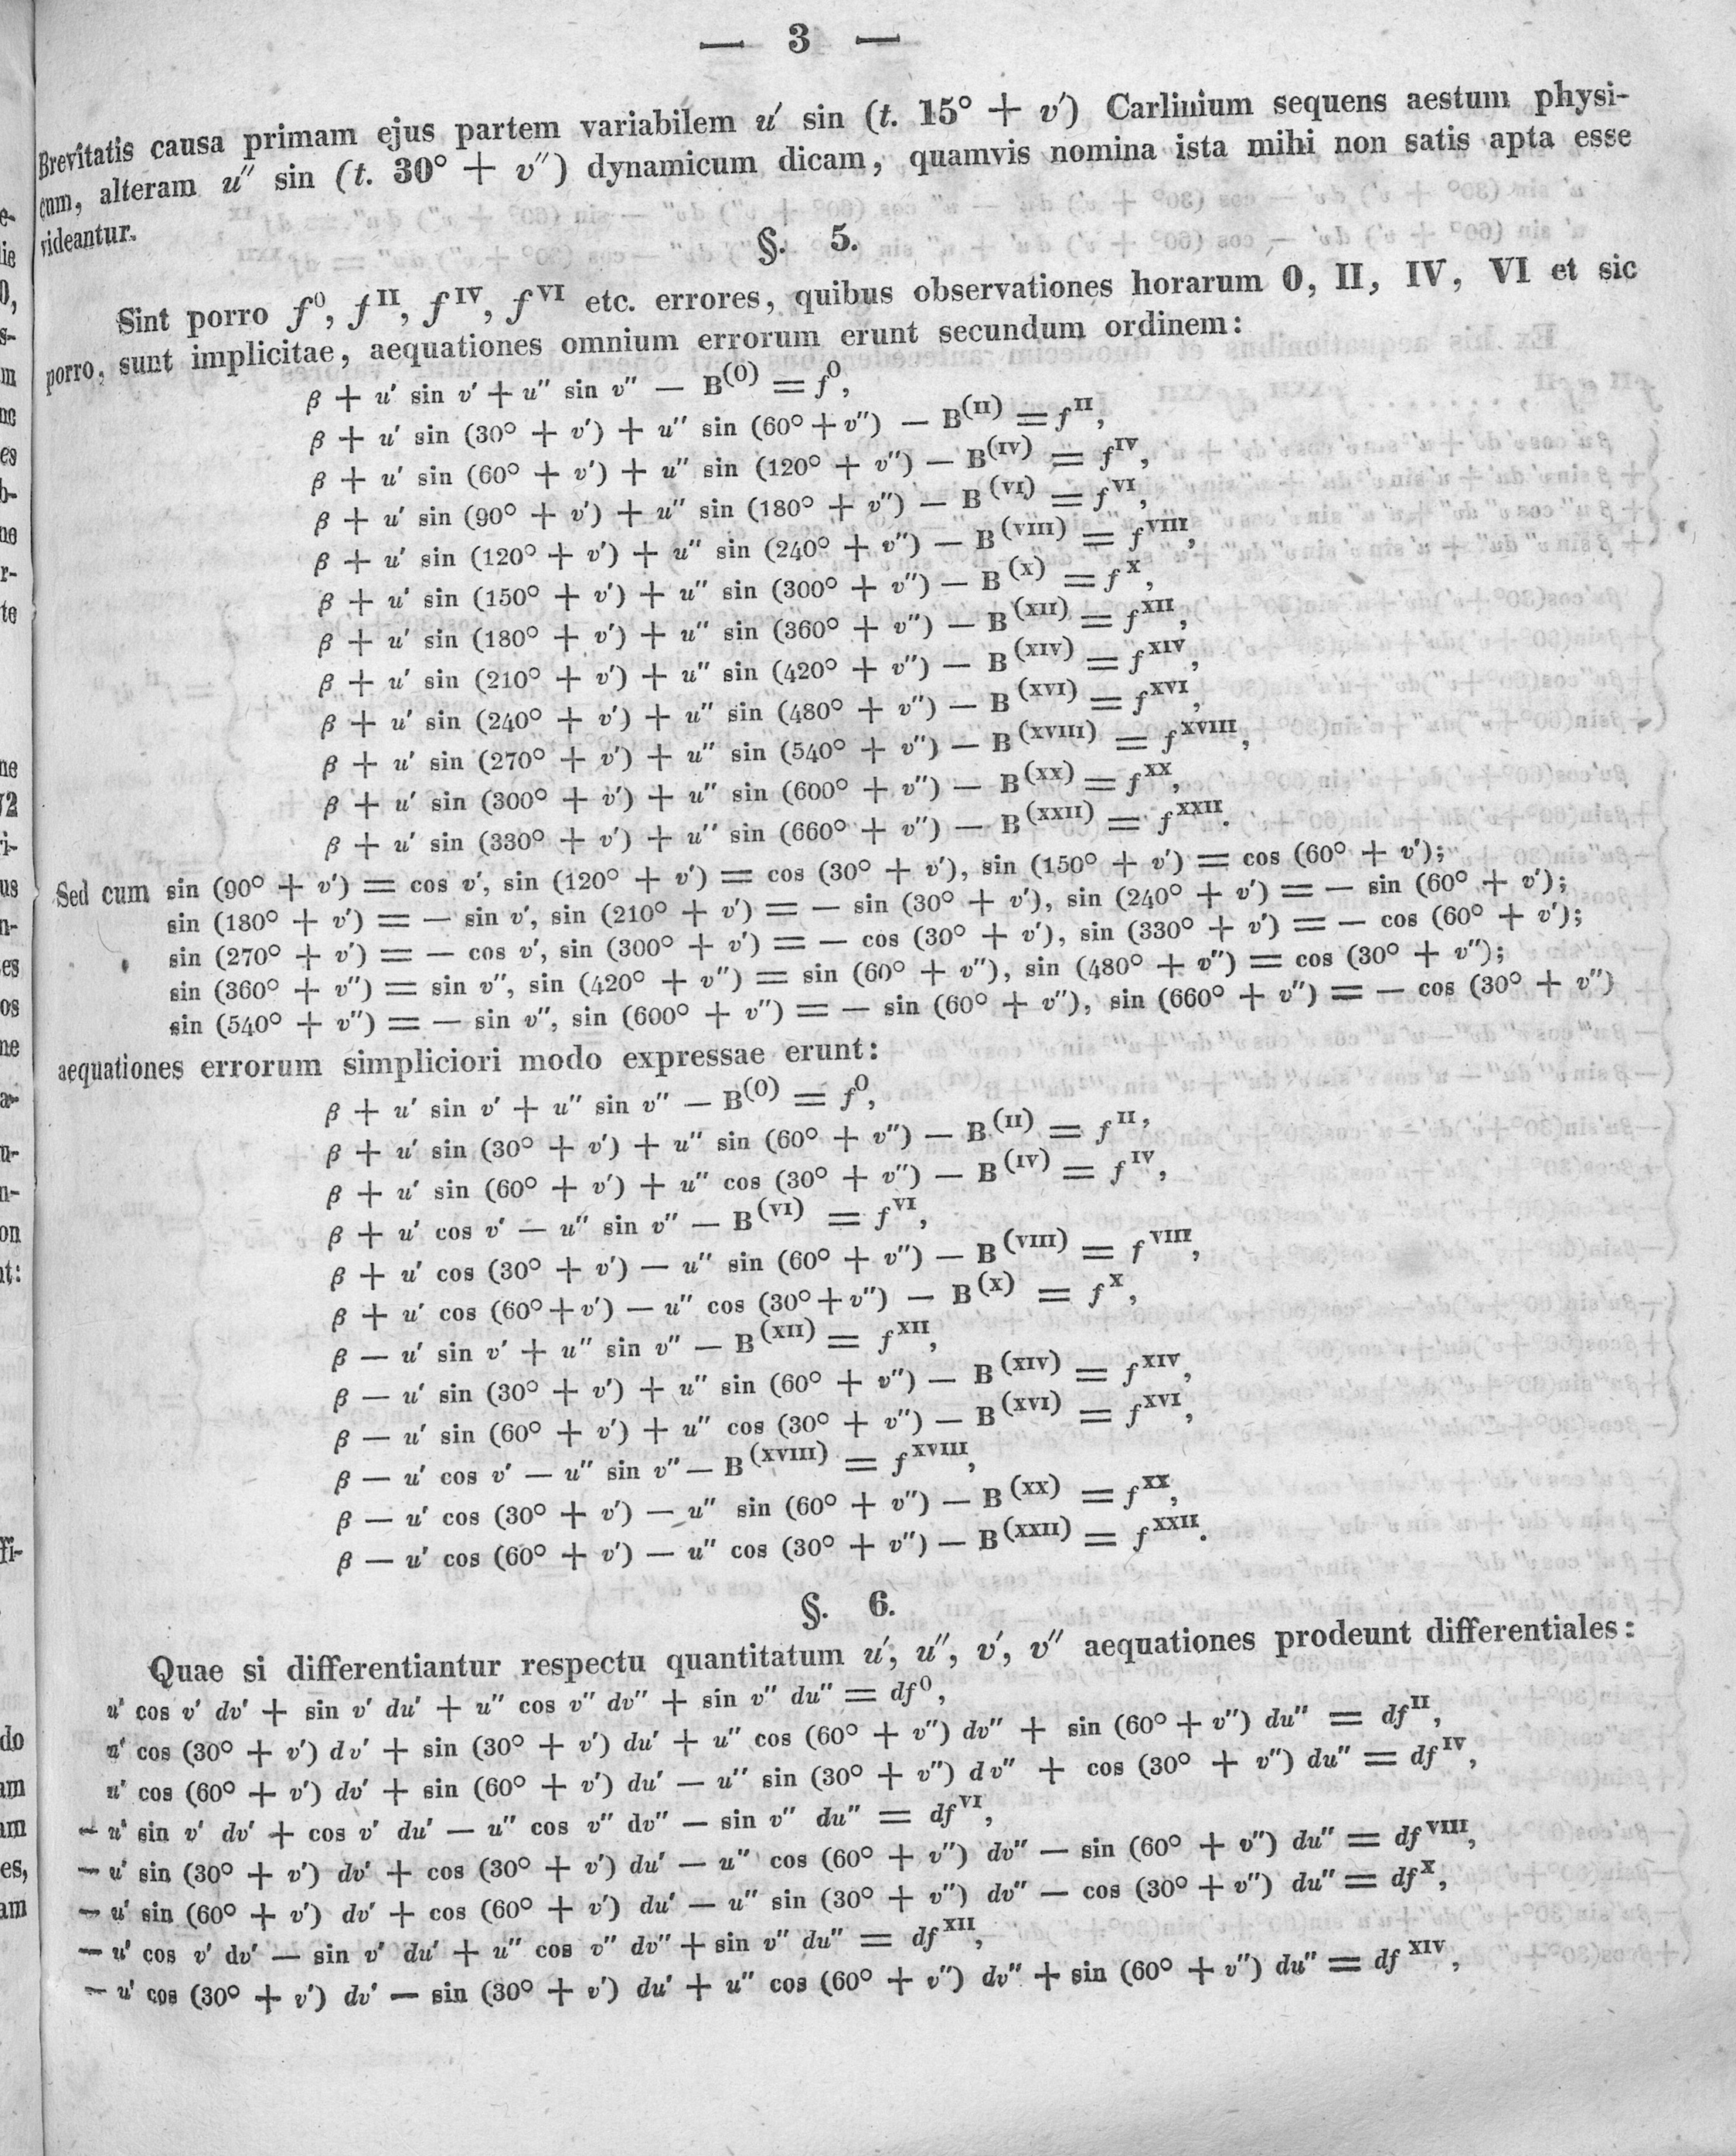 — 3 —
Brevitatis causa primam ejus partem variabilem u′ sin (t. 15° + v′) Carlinium sequens aestum physi-
cum, alteram u″ sin (t. 30° + v″) dynamicum dicam, quamvis nomina ista mihi non satis apta esse
videantur.
§. 5.
Sint porro f⁰, f^II, f^IV, f^VI etc. errores, quibus observationes horarum 0, II, IV, VI et sic
porro, sunt implicitae, aequationes omnium errorum erunt secundum ordinem:
β + u′ sin v′ + u″ sin v″ — B^(0) = f^0,
β + u′ sin (30° + v′) + u″ sin (60° + v″) — B^(II) = f^II,
β + u′ sin (60° + v′) + u″ sin (120° + v″) — B^(IV) = f^IV,
β + u′ sin (90° + v′) + u″ sin (180° + v″) — B^(VI) = f^VI,
β + u′ sin (120° + v′) + u″ sin (240° + v″) — B^(VIII) = f^VIII,
β + u′ sin (150° + v′) + u″ sin (300° + v″) — B^(X) = f^X,
β + u′ sin (180° + v′) + u″ sin (360° + v″) — B^(XII) = f^XII,
β + u′ sin (210° + v′) + u″ sin (420° + v″) — B^(XIV) = f^XIV,
β + u′ sin (240° + v′) + u″ sin (480° + v″) — B^(XVI) = f^XVI,
β + u′ sin (270° + v′) + u″ sin (540° + v″) — B^(XVIII) = f^XVIII,
β + u′ sin (300° + v′) + u″ sin (600° + v″) — B^(XX) = f^XX,
β + u′ sin (330° + v′) + u″ sin (660° + v″) — B^(XXII) = f^XXII.
Sed cum sin (90° + v′) = cos v′, sin (120° + v′) = cos (30° + v′), sin (150° + v′) = cos (60° + v′);
sin (180° + v′) = — sin v′, sin (210° + v′) = — sin (30° + v′), sin (240° + v′) = — sin (60° + v′);
sin (270° + v′) = — cos v′, sin (300° + v′) = — cos (30° + v′), sin (330° + v′) = — cos (60° + v′);
sin (360° + v″) = sin v″, sin (420° + v″) = sin (60° + v″), sin (480° + v″) = cos (30° + v″);
sin (540° + v″) = — sin v″, sin (600° + v″) = — sin (60° + v″), sin (660° + v″) = — cos (30° + v″)
aequationes errorum simpliciori modo expressae erunt:
β + u′ sin v′ + u″ sin v″ — B^(0) = f^0,
β + u′ sin (30° + v′) + u″ sin (60° + v″) — B^(II) = f^II,
β + u′ sin (60° + v′) + u″ cos (30° + v″) — B^(IV) = f^IV,
β + u′ cos v′ — u″ sin v″ — B^(VI) = f^VI,
β + u′ cos (30° + v′) — u″ sin (60° + v″) — B^(VIII) = f^VIII,
β + u′ cos (60° + v′) — u″ cos (30° + v″) — B^(X) = f^X,
β — u′ sin v′ + u″ sin v″ — B^(XII) = f^XII,
β — u′ sin (30° + v′) + u″ sin (60° + v″) — B^(XIV) = f^XIV,
β — u′ sin (60° + v′) + u″ cos (30° + v″) — B^(XVI) = f^XVI,
β — u′ cos v′ — u″ sin v″ — B^(XVIII) = f^XVIII,
β — u′ cos (30° + v′) — u″ sin (60° + v″) — B^(XX) = f^XX,
β — u′ cos (60° + v′) — u″ cos (30° + v″) — B^(XXII) = f^XXII.
§. 6.
Quae si differentiantur respectu quantitatum u′, u″, v′, v″ aequationes prodeunt differentiales:
u′ cos v′ dv′ + sin v′ du′ + u″ cos v″ dv″ + sin v″ du″ = df^0,
u′ cos (30° + v′) dv′ + sin (30° + v′) du′ + u″ cos (60° + v″) dv″ + sin (60° + v″) du″ = df^II,
u′ cos (60° + v′) dv′ + sin (60° + v′) du′ — u″ sin (30° + v″) dv″ + cos (30° + v″) du″ = df^IV,
— u′ sin v′ dv′ + cos v′ du′ — u″ cos v″ dv″ — sin v″ du″ = df^VI,
— u′ sin (30° + v′) dv′ + cos (30° + v′) du′ — u″ cos (60° + v″) dv″ — sin (60° + v″) du″ = df^VIII,
— u′ sin (60° + v′) dv′ + cos (60° + v′) du′ — u″ sin (30° + v″) dv″ — cos (30° + v″) du″ = df^X,
— u′ cos v′ dv′ — sin v′ du′ + u″ cos v″ dv″ + sin v″ du″ = df^XII,
— u′ cos (30° + v′) dv′ — sin (30° + v′) du′ + u″ cos (60° + v″) dv″ + sin (60° + v″) du″ = df^XIV,